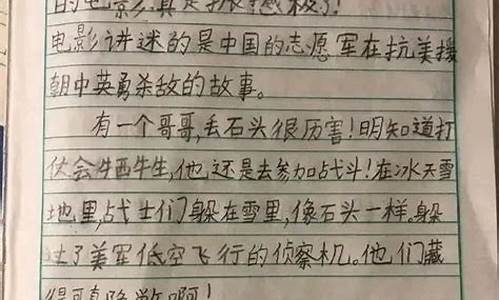 的电影真是扣人极了!
电影讲述的是中国的志愿军在抗美援
朝中英勇杀敌的故事。
有一个哥哥,丢石头很厉害!明知道打
仗会牺牲,他还是去参加战斗!在冰天雪
地里,战士们躲在雪里,像石头一样。躲
过了美军低空飞行的侦察机。他们藏
得可真隐蔽啊!